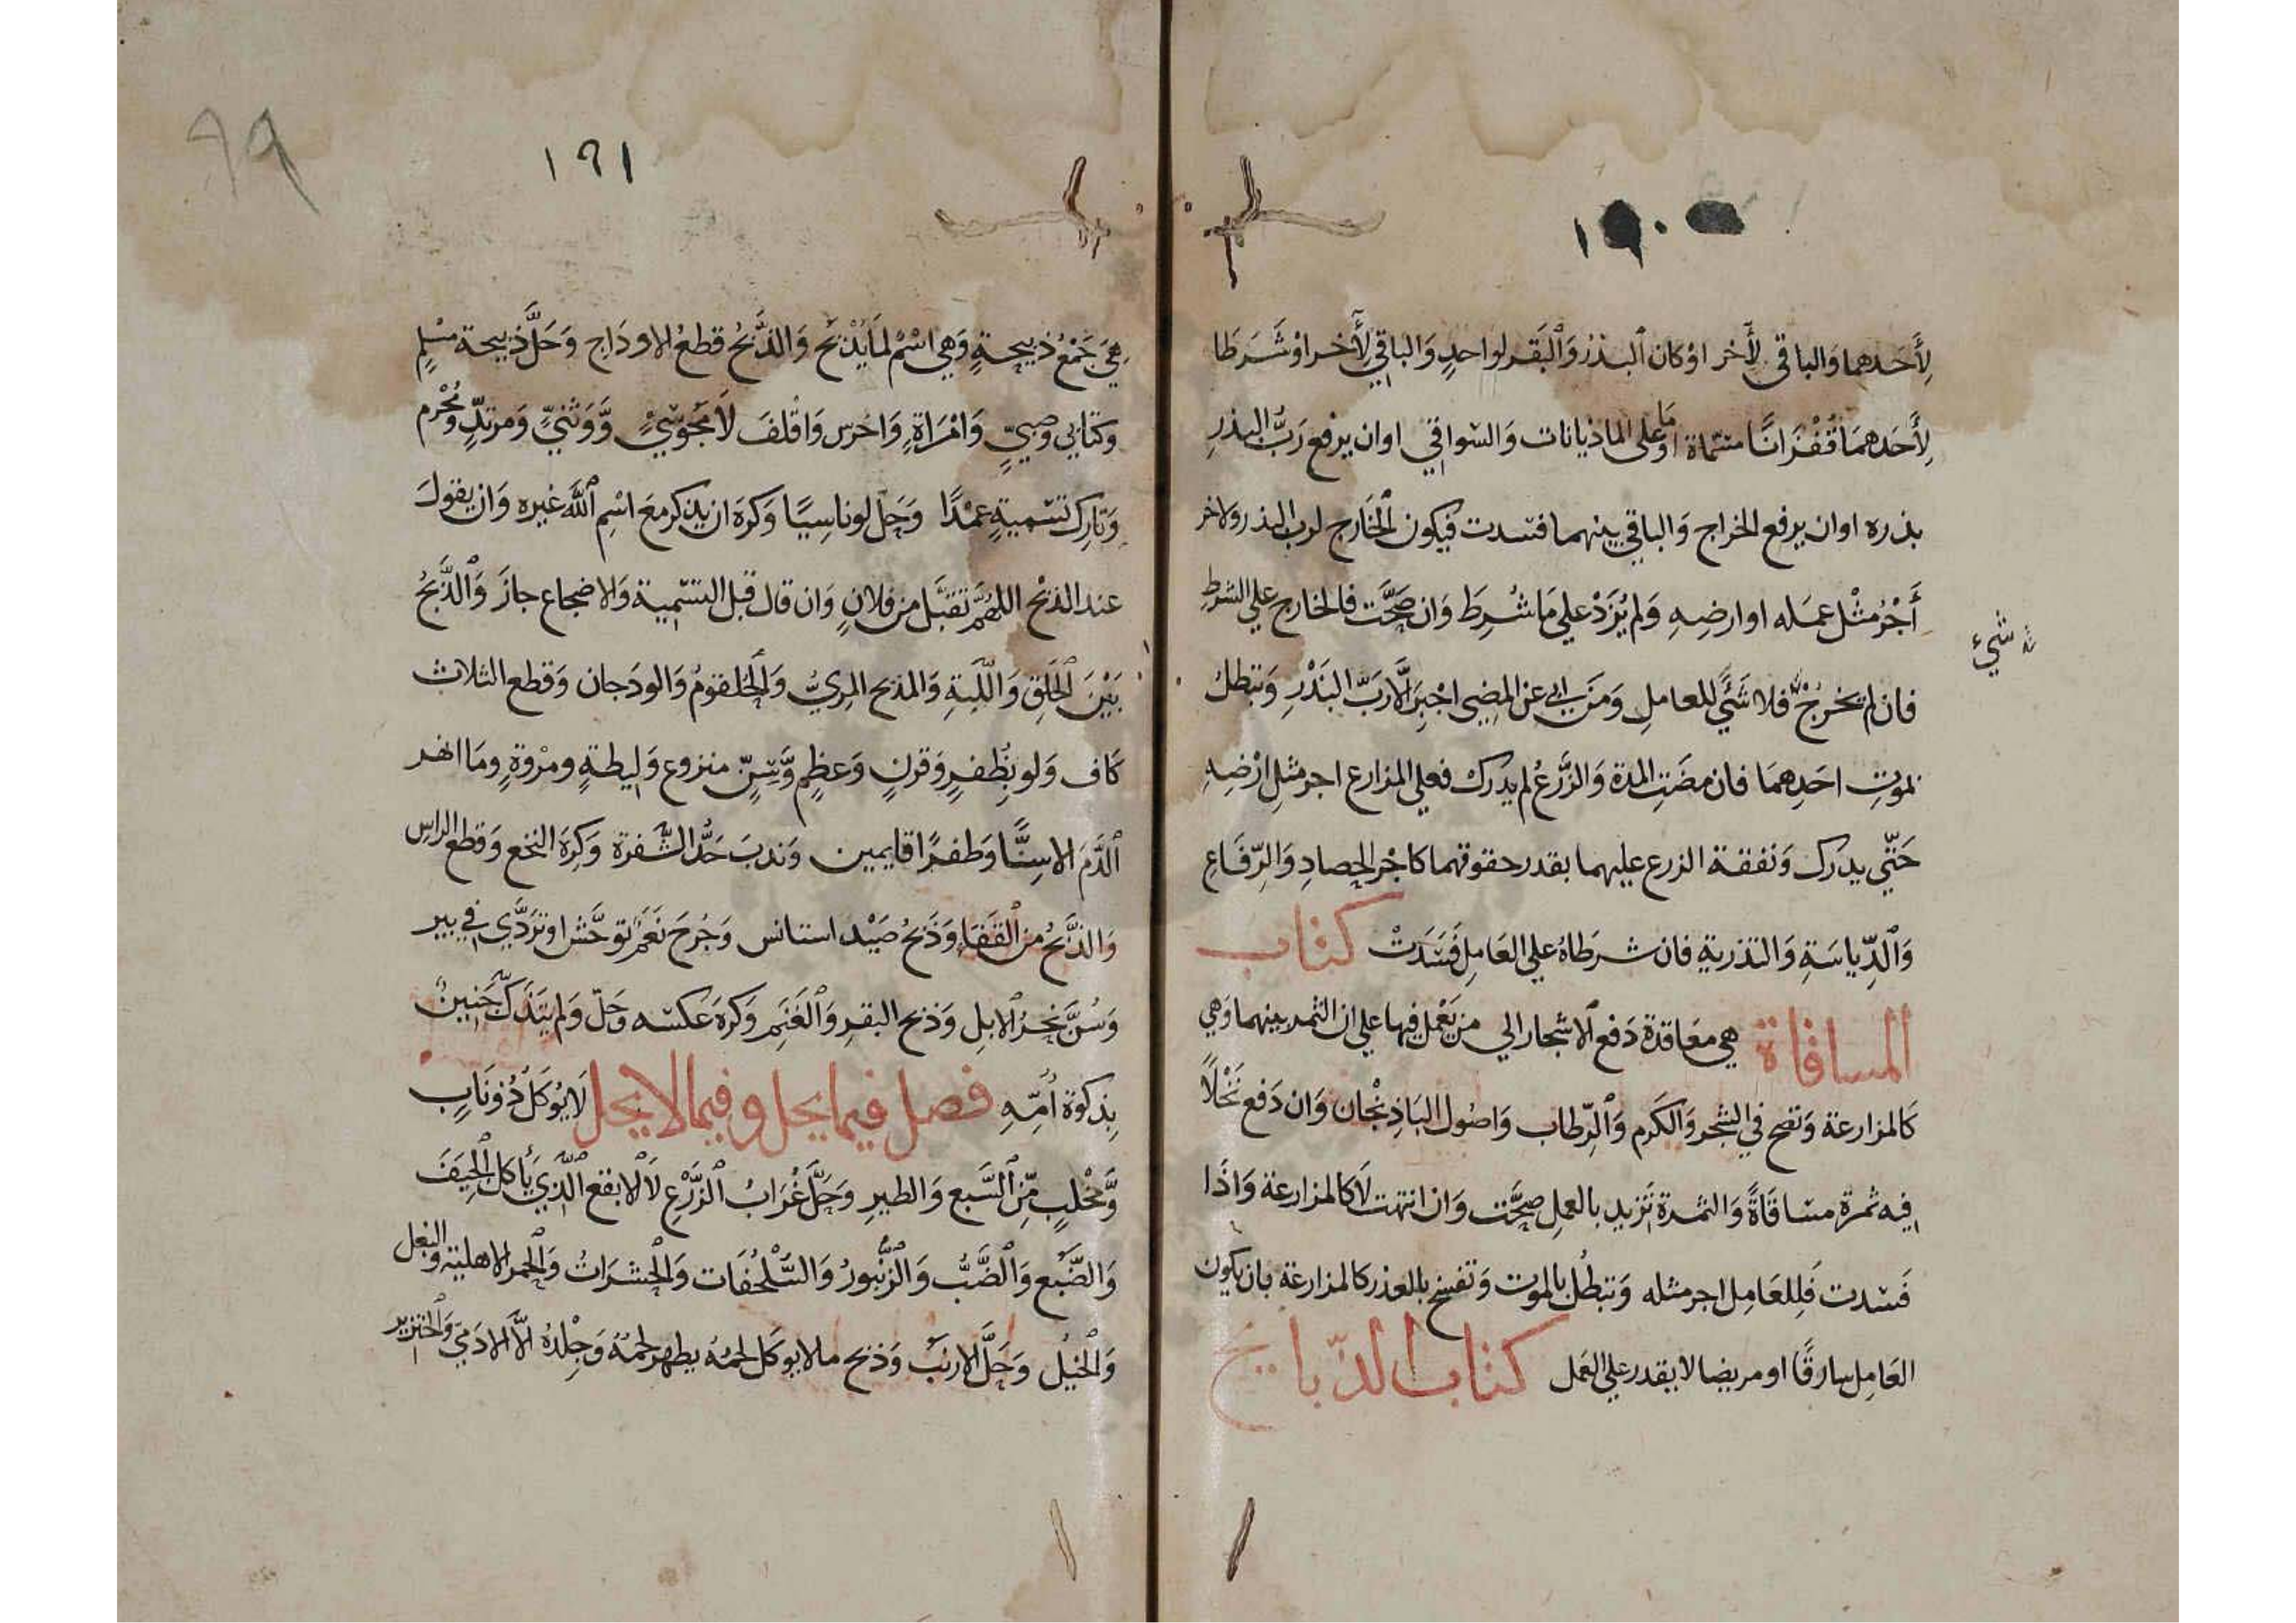 ١٩٠
لِأَحَدهما وَالباقي لِأَخر اوْ كان اَلبذرُ وَاَلْبَقَر لواحدٍ وَالباقي لِأَخر اوْ شَرَطَا
لِأَحَدهمَا قُفْزَانًا مسَمّاة اوْ مَا على الماذيانات وَالسّواقي او ان يرفع رَبُّ البذرِ
بذره او ان يرفع الخراج وَالباقي بينهما فسَدت فيكون اَلْخَارج لرب البذر ولاخر
أَجْرُ مثْل عمَله او ارضِهِ وَلم يُزَدْ علي مَا شُرِطَ وَان صَحَّت فالخارج علي الشرطِ
فان لم يخرُجْ فلا شَئَي للعاملِ وَمَن ابي عن المضِي اجْبِرَ الَّا رَبَّ البَذْرِ وَتبطلُ
شيء
بموتِ احَدِهمَا فان مضَتِ المدة وَالزَّرعُ لم يدرك فعلي المزارع اجر مثلِ ارْضِهِ
حَتّي يدرك وَنفقة الزرع عليهما بقدر حقوقهما كاجْر الحصادِ وَالرّفَاعِ
وَاَلدِّياسَةِ وَالتذريةِ فان شرطَاهُ علي العَامِل فَسَدَتْ كتاب
المساقاة هي معَاقدة دَفع اَلاشجار الي من يَعْمل فيها علي ان الثمر بينهما وَهي
كَالمزارعة وَتصح في الشجر وَالكَرم وَاَلرّطاب وَاصُول البَاذِنْجان وَان دَفع نَخْلًا
فيه ثمرة مسَاقَاةً وَالثمرة تَزيد بالعملِ صحَّت وَان انتهت لَا كالمزارعة وَاذَا
فَسَدت فَلِلعَامِل اجر مثله وَتبطُل بالموت وَتفسخ بالعذر كالمزارعة بان يكون
العَامِل سارقًا او مريضا لا يقدر علي العمل كتاب الذّبايح
٩٩
١٩١
هِيَ جَمْعُ ذبيحةٍ وَهي اسْمُ لمَا يُذْبَح وَالذَّبْحُ قطعُ الاودَاج وَحَلَّ ذبيحة مسْلِمٍ
وكتابي وَصبيٍّ وَامْرَاةٍ وَاخرس وَاقلفَ لَا مجَوسيٍّ وَّوَثَنيٍّ وَمرتدٍّ ومُحْرم
وَتَارِك تسْميةٍ عمْدًا وَحَلّ لو ناسِيًا وَكرهَ ان يذكر معَ اسْمِ اَللَّه غيره وَان يقولَ
عند الذبْح اللهُمَّ تقبَّل من فلانٍ وَان قال قبل التسْمِية وَالاضجاع جازَ وَاَلذَّبحُ
بَيْنَ اَلحَلقِ وَاللَّبةِ وَالمذبح المِريُّ وَاَلحُلقومُ وَالودَجان وَقطع الثلاث
كَاف وَلو بِظُفرٍ وَقرنٍ وَعظمٍ وَّسِنّ منزوع وَليطةٍ ومرْوةٍ وما انهر
اَلدَّمَ الا سِنًّا وَظفرًا قايمين وَندبَ حَدُّ الشّفرة وَكرهَ النخع وَقطع الراس
وَالذَّبحُ من اَلقَفَا وَذَبحُ صَيْد استانس وَجُرحَ نَعَمٌ توحَّش او تَرَدَّي في بير
وَسُنَّ نحرُ اَلابلِ وَذبح البقرِ وَاَلغَنَمِ وَكرهَ عَكسه وَحَلّ وَلم يَتذَكّ جَنينٌ
بِذكوة اُمِّهِ فصل فيما يحل وفيما لا يحل لَا يُوكَل ذُو نَابٍ
وَّمخْلبٍ مِّن اَلسَّبع وَالطيرِ وَحَلَّ غُرَابُ اَلزَّرْعِ لَا اَلابقع اَلَّذِي يَأكل اَلجِيَفَ
وَالضَّبُع وَاَلضَّبُّ وَاَلزُّنْبورُ وَالسُّلْحُفَات وَاَلحشرَاتُ وَاَلحمر الاهليّة وَالبغل
وَاَلخيلُ وَحَلَّ الارنبُ وَذبح ما لا يوكَل لحمُه يطهر لحمُهُ وَجِلْدُهُ الَّا الادَمِيّ وَاَلخنزير